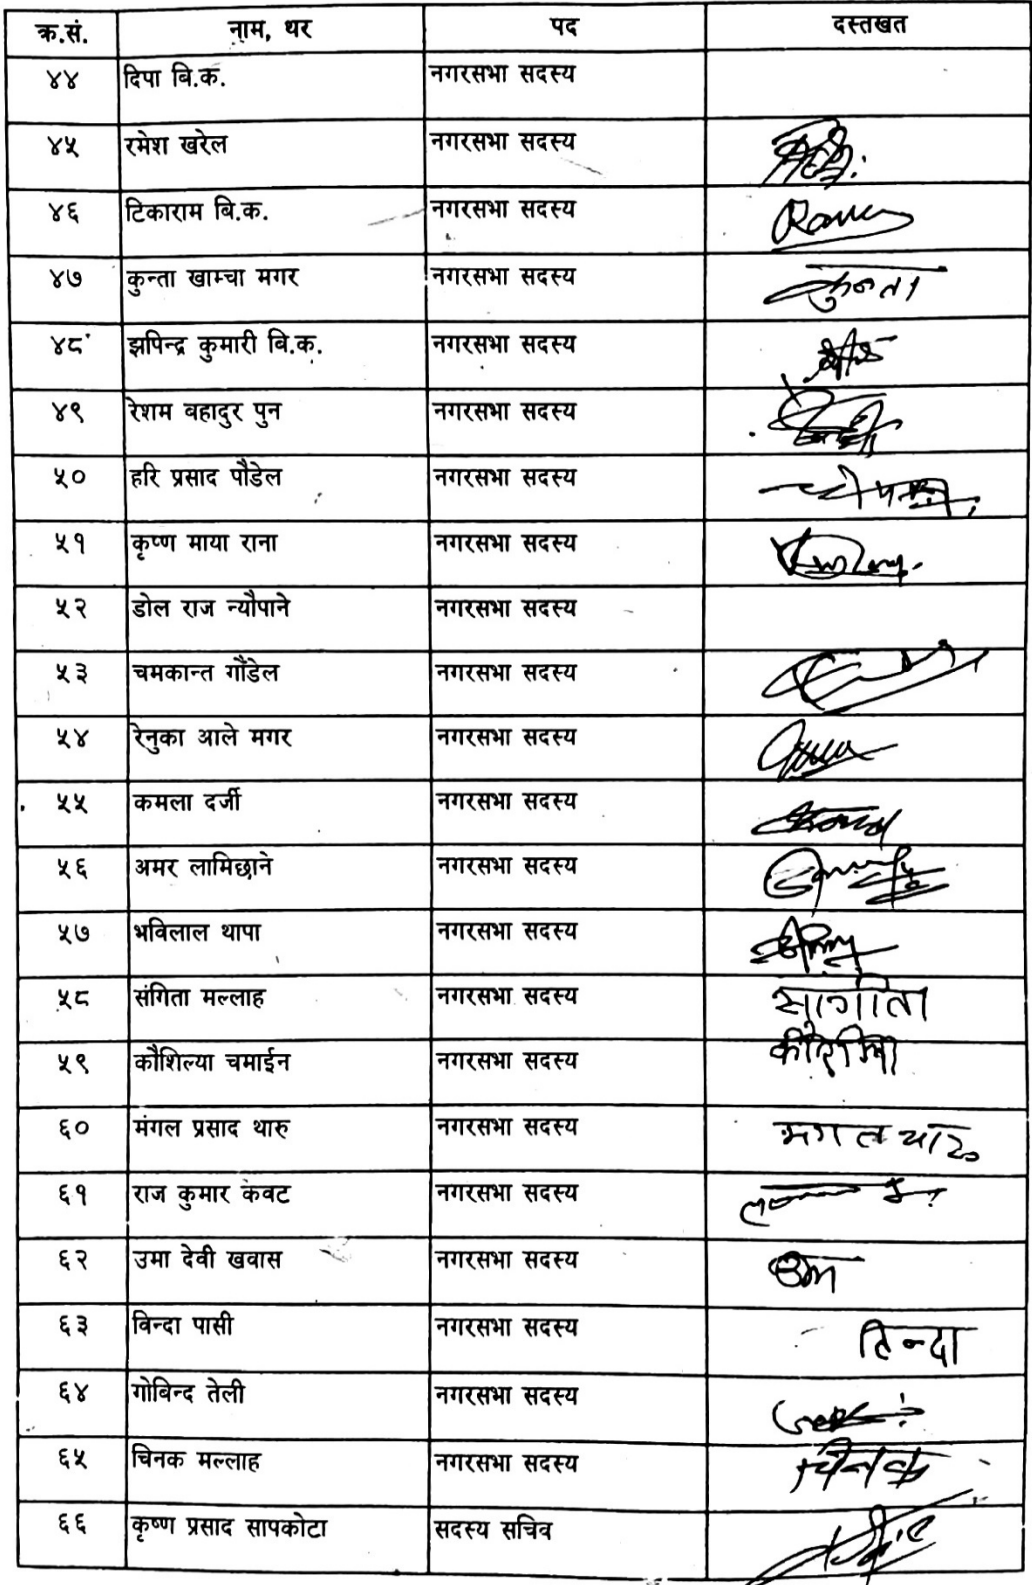 क्र.सं. नाम, थर पद दस्तखत
४४ दिपा बि.क. नगरसभा सदस्य
४५ रमेश खरेल नगरसभा सदस्य
४६ टिकाराम बि.क. नगरसभा सदस्य
४७ कुन्ता खाम्चा मगर नगरसभा सदस्य कुन्ता
४८ झपिन्द्र कुमारी बि.क. नगरसभा सदस्य
४९ रेशम बहादुर पुन नगरसभा सदस्य
५० हरि प्रसाद पौडेल नगरसभा सदस्य
५१ कृष्ण माया राना नगरसभा सदस्य
५२ डोल राज न्यौपाने नगरसभा सदस्य
५३ चमकान्त गौंडेल नगरसभा सदस्य
५४ रेनुका आले मगर नगरसभा सदस्य
५५ कमला दर्जी नगरसभा सदस्य
५६ अमर लामिछाने नगरसभा सदस्य
५७ भविलाल थापा नगरसभा सदस्य
५८ संगिता मल्लाह नगरसभा सदस्य
५९ कौशिल्या चमाईन नगरसभा सदस्य
६० मंगल प्रसाद थारु नगरसभा सदस्य मगल थारु
६१ राज कुमार केवट नगरसभा सदस्य
६२ उमा देवी खवास नगरसभा सदस्य
६३ विन्दा पासी नगरसभा सदस्य
६४ गोबिन्द तेली नगरसभा सदस्य
६५ चिनक मल्लाह नगरसभा सदस्य चिनक
६६ कृष्ण प्रसाद सापकोटा सदस्य सचिव